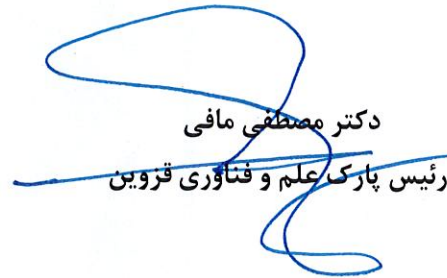 دکتر مصطفی مافی
رئیس پارک علم و فناوری قزوین